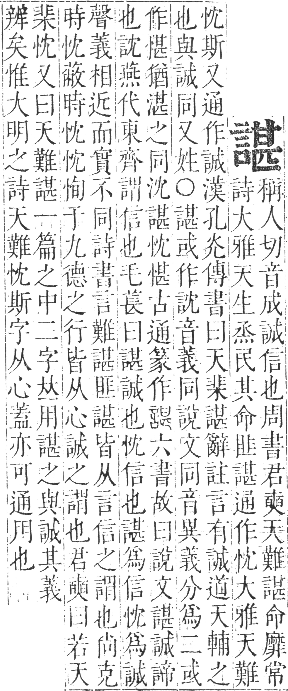 諶
稱人切音成誠信也周書君奭天難諶命靡常
詩大雅天生烝民其命匪諶通作忱大雅天難
忱斯又通作誠漢孔灮傳書曰天棐諶辭註言有誠道天輔之
也與誠同又姓○諶或作訦音義同說文同音異義分爲二或
作愖猶湛之同沈諶忱愖古通篆作諶六書故曰說文諶誠諦
也訦燕代東齊謂信也毛萇曰諶誠也忱信也諶爲信忱爲誠
聲義相近而實不同詩書言難諶匪諶皆从言信之謂也尚克
時忱蔽時忱忱恂于九德之行皆从心誠之謂也君奭曰若天
棐忱又曰天難諶一篇之中二字𠀤用諶之與誠其義
辨矣惟大明之詩天難忱斯字从心蓋亦可通用也